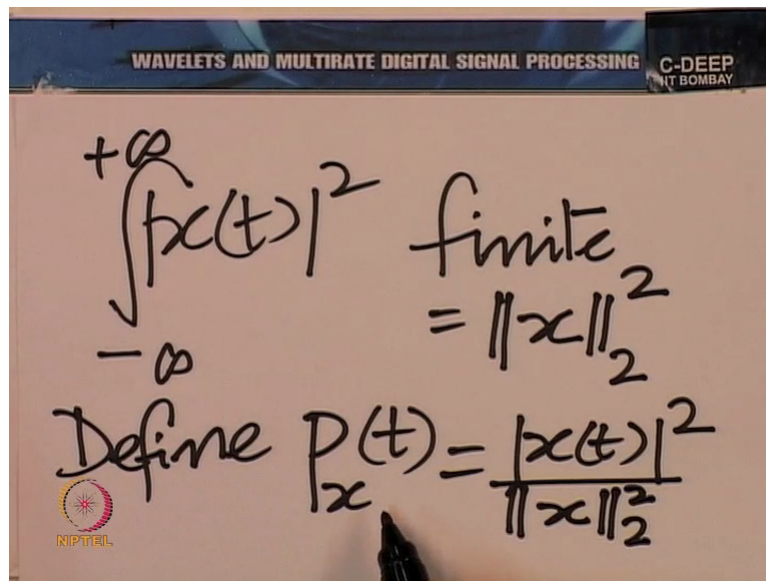 WAVELETS AND MULTIRATE DIGITAL SIGNAL PROCESSING
C-DEEP
IIT BOMBAY
+∞
∫|x(t)|² finite
-∞
= ||x||₂²
Define pₓ(t) = |x(t)|² / ||x||₂²
NPTEL